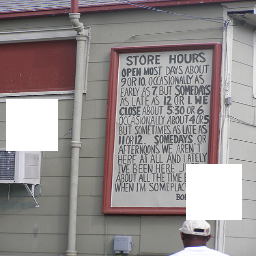 STORE HOURS
OPEN MOST DAYS ABOUT
9 OR 10. OCCASIONALLY AS
EARLY AS 7 BUT SOMEDAYS
AS LATE AS 12 OR 1. WE
CLOSE ABOUT 5:30 OR 6
OCCASIONALLY ABOUT 4 OR 5
BUT SOMETIMES AS LATE AS
11 OR 12. SOMEDAYS OR
AFTERNOONS WE AREN'T
HERE AT ALL AND LATELY
I'VE BEEN HERE
ABOUT ALL THE TIME
WHEN I'M SOMEPLACE